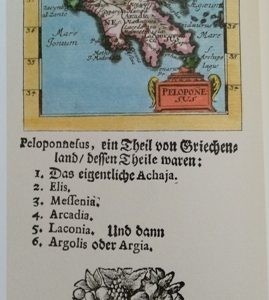 NE
Mare
Jonium
Archipe
lagus
37
37
PELOPONE
SUS
Peloponnesus, ein Theil von Griechen-
land/ dessen Theile waren:
1. Das eigentliche Achaja.
2. Elis.
3. Messenia.
4. Arcadia.
5. Laconia. Und dann
6. Argolis oder Argia.